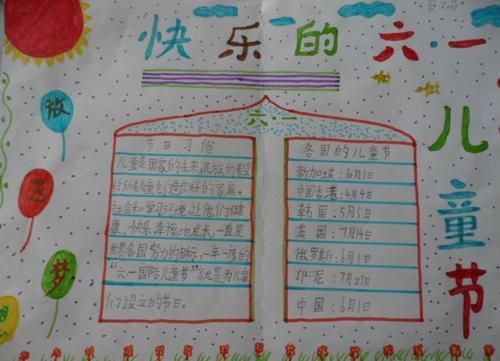 快乐的六一
儿童节
放飞梦
六·一
节日习俗
儿童是国家的未来,民族的希望
给所有儿童创造良好的家庭。
社会和学习环境,让他们健
康、快乐、幸福地成长,一直是
世界各国努力的目标,一年一度的
“六一国际儿童节”就是为儿童
们设立的节日。
各国的儿童节
新加坡:10月1日
中国香港:4月4日
韩国:5月5日
美国:7月14日
俄罗斯:6月1日
印尼:7月23日
中国:6月1日